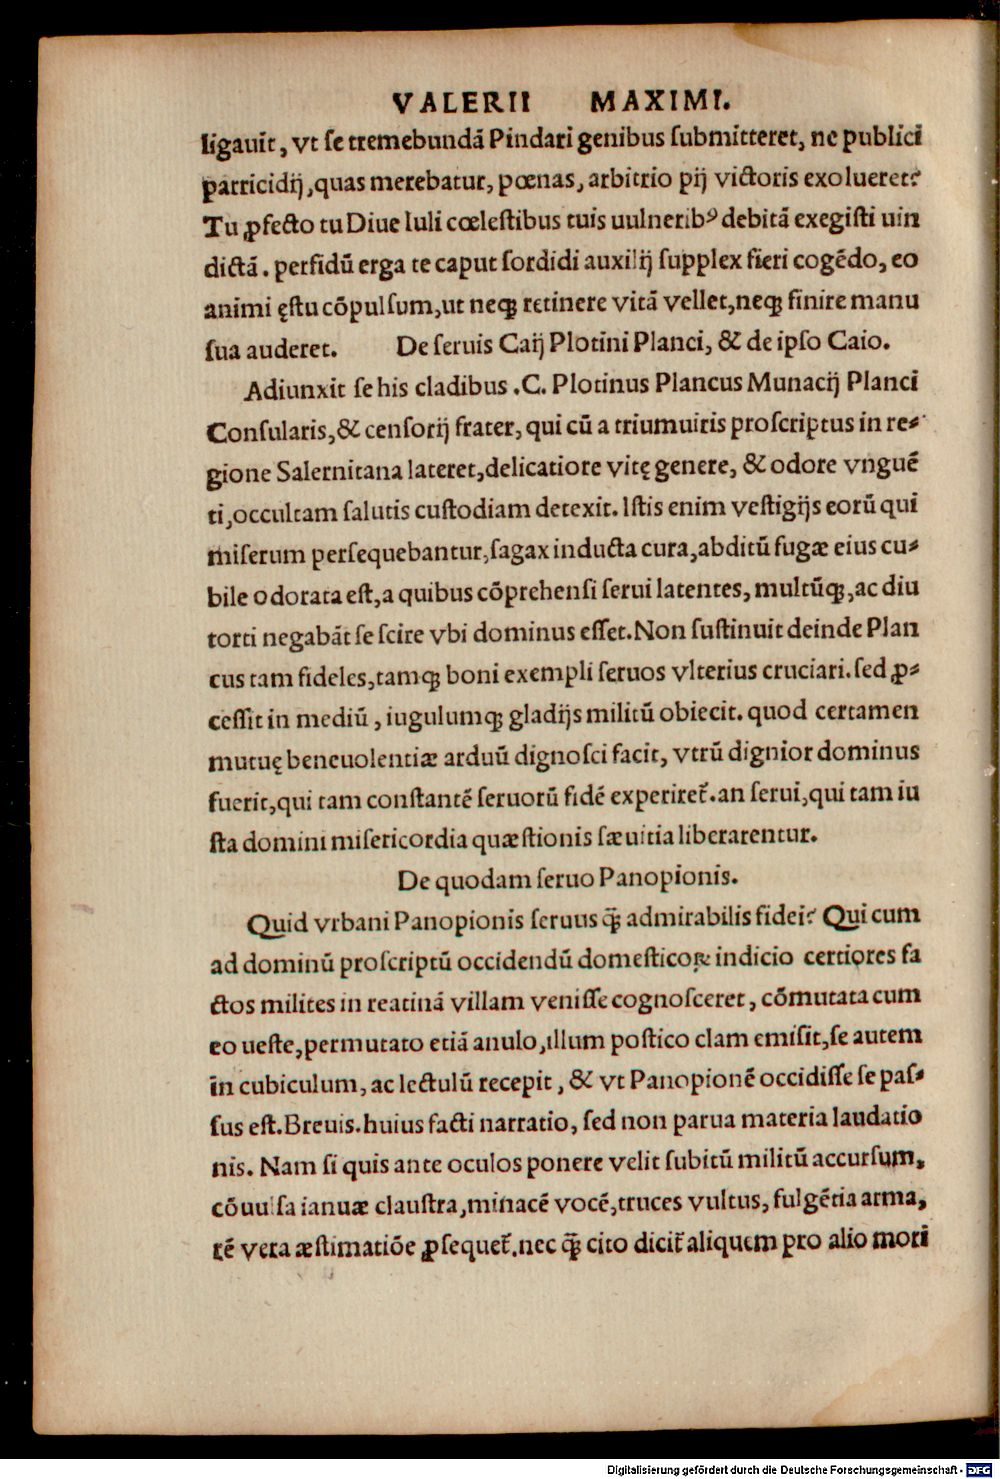 VALERII MAXIMI.
ligauit, vt se tremebundā Pindari genibus submitteret, ne publici
parricidij, quas merebatur, pœnas, arbitrio pij victoris exolueret?
Tu ꝓfecto tu Diue Iuli cœlestibus tuis uulneribꝰ debitā exegisti uin
dictā. perfidū erga te caput sordidi auxilij supplex fieri cogēdo, eo
animi ęstu cōpulsum, ut neqꝫ retinere vitā vellet, neqꝫ finire manu
sua auderet. De seruis Caij Plotini Planci, & de ipso Caio.
Adiunxit se his cladibus .C. Plotinus Plancus Munacij Planci
Consularis, & censorij frater, qui cū a triumuiris proscriptus in re-
gione Salernitana lateret, delicatiore vitę genere, & odore vnguē
ti, occultam salutis custodiam detexit. Istis enim vestigijs eorū qui
miserum persequebantur, sagax inducta cura, abditū fugæ eius cu-
bile odorata est, a quibus cōprehensi serui latentes, multūqꝫ, ac diu
torti negabāt se scire vbi dominus esset. Non sustinuit deinde Plan
cus tam fideles, tamqꝫ boni exempli seruos vlterius cruciari. sed ꝓ-
cessit in mediū, iugulumqꝫ gladijs militū obiecit. quod certamen
mutuę beneuolentiæ arduū dignosci facit, vtrū dignior dominus
fuerit, qui tam constantē seruorū fidē experiret᷑. an serui, qui tam iu
sta domini misericordia quæstionis sæuitia liberarentur.
De quodam seruo Panopionis.
Quid vrbani Panopionis seruus q̄ꝫ admirabilis fidei? Qui cum
ad dominū proscriptū occidendū domesticoꝝ indicio certiores fa
ctos milites in reatinā villam venisse cognosceret, cōmutata cum
eo ueste, permutato etiā anulo, illum postico clam emisit, se autem
in cubiculum, ac lectulū recepit, & vt Panopionē occidisse se pas-
sus est. Breuis. huius facti narratio, sed non parua materia laudatio
nis. Nam si quis ante oculos ponere velit subitū militū accursum,
cōuulsa ianuæ claustra, minacē vocē, truces vultus, fulgētia arma,
rē vera æstimatiōe ꝓsequet᷑. nec q̄ꝫ cito dicit᷑ aliquem pro alio mori
Digitalisierung gefördert durch die Deutsche Forschungsgemeinschaft - DFG